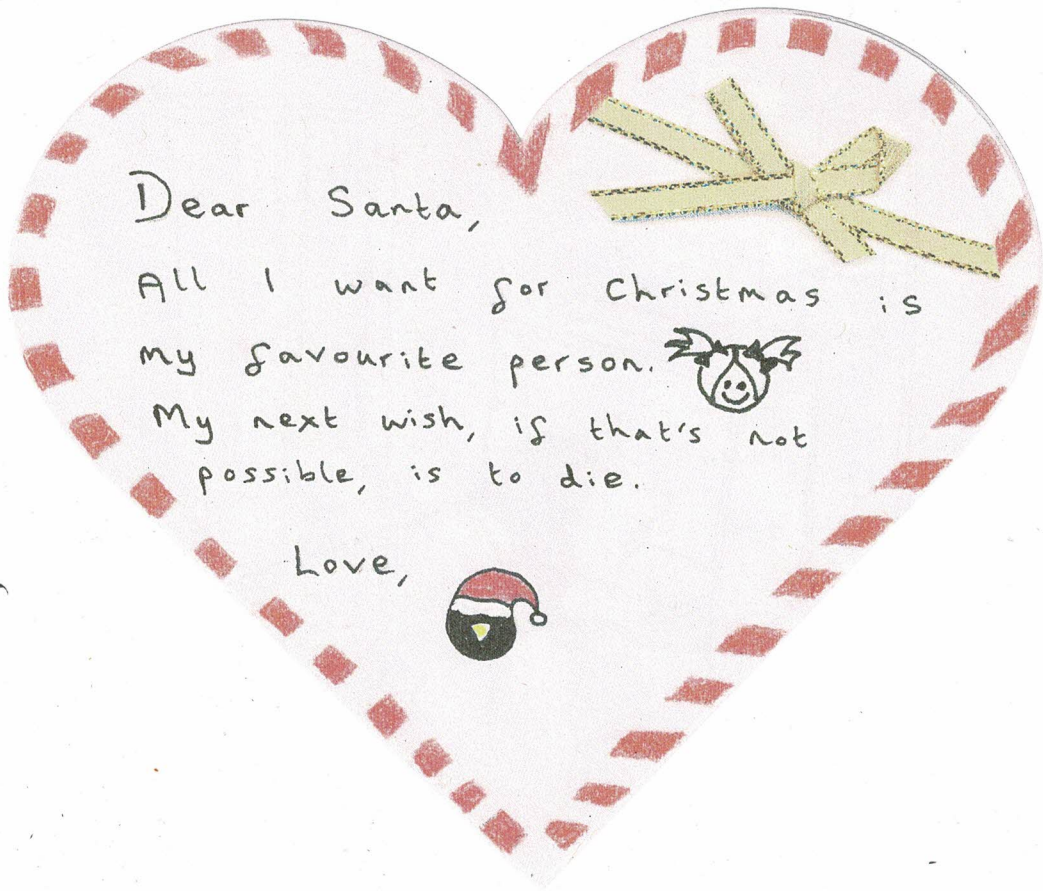 Dear Santa,
All I want for Christmas is
my favourite person.
My next wish, if that's not
possible, is to die.
Love,